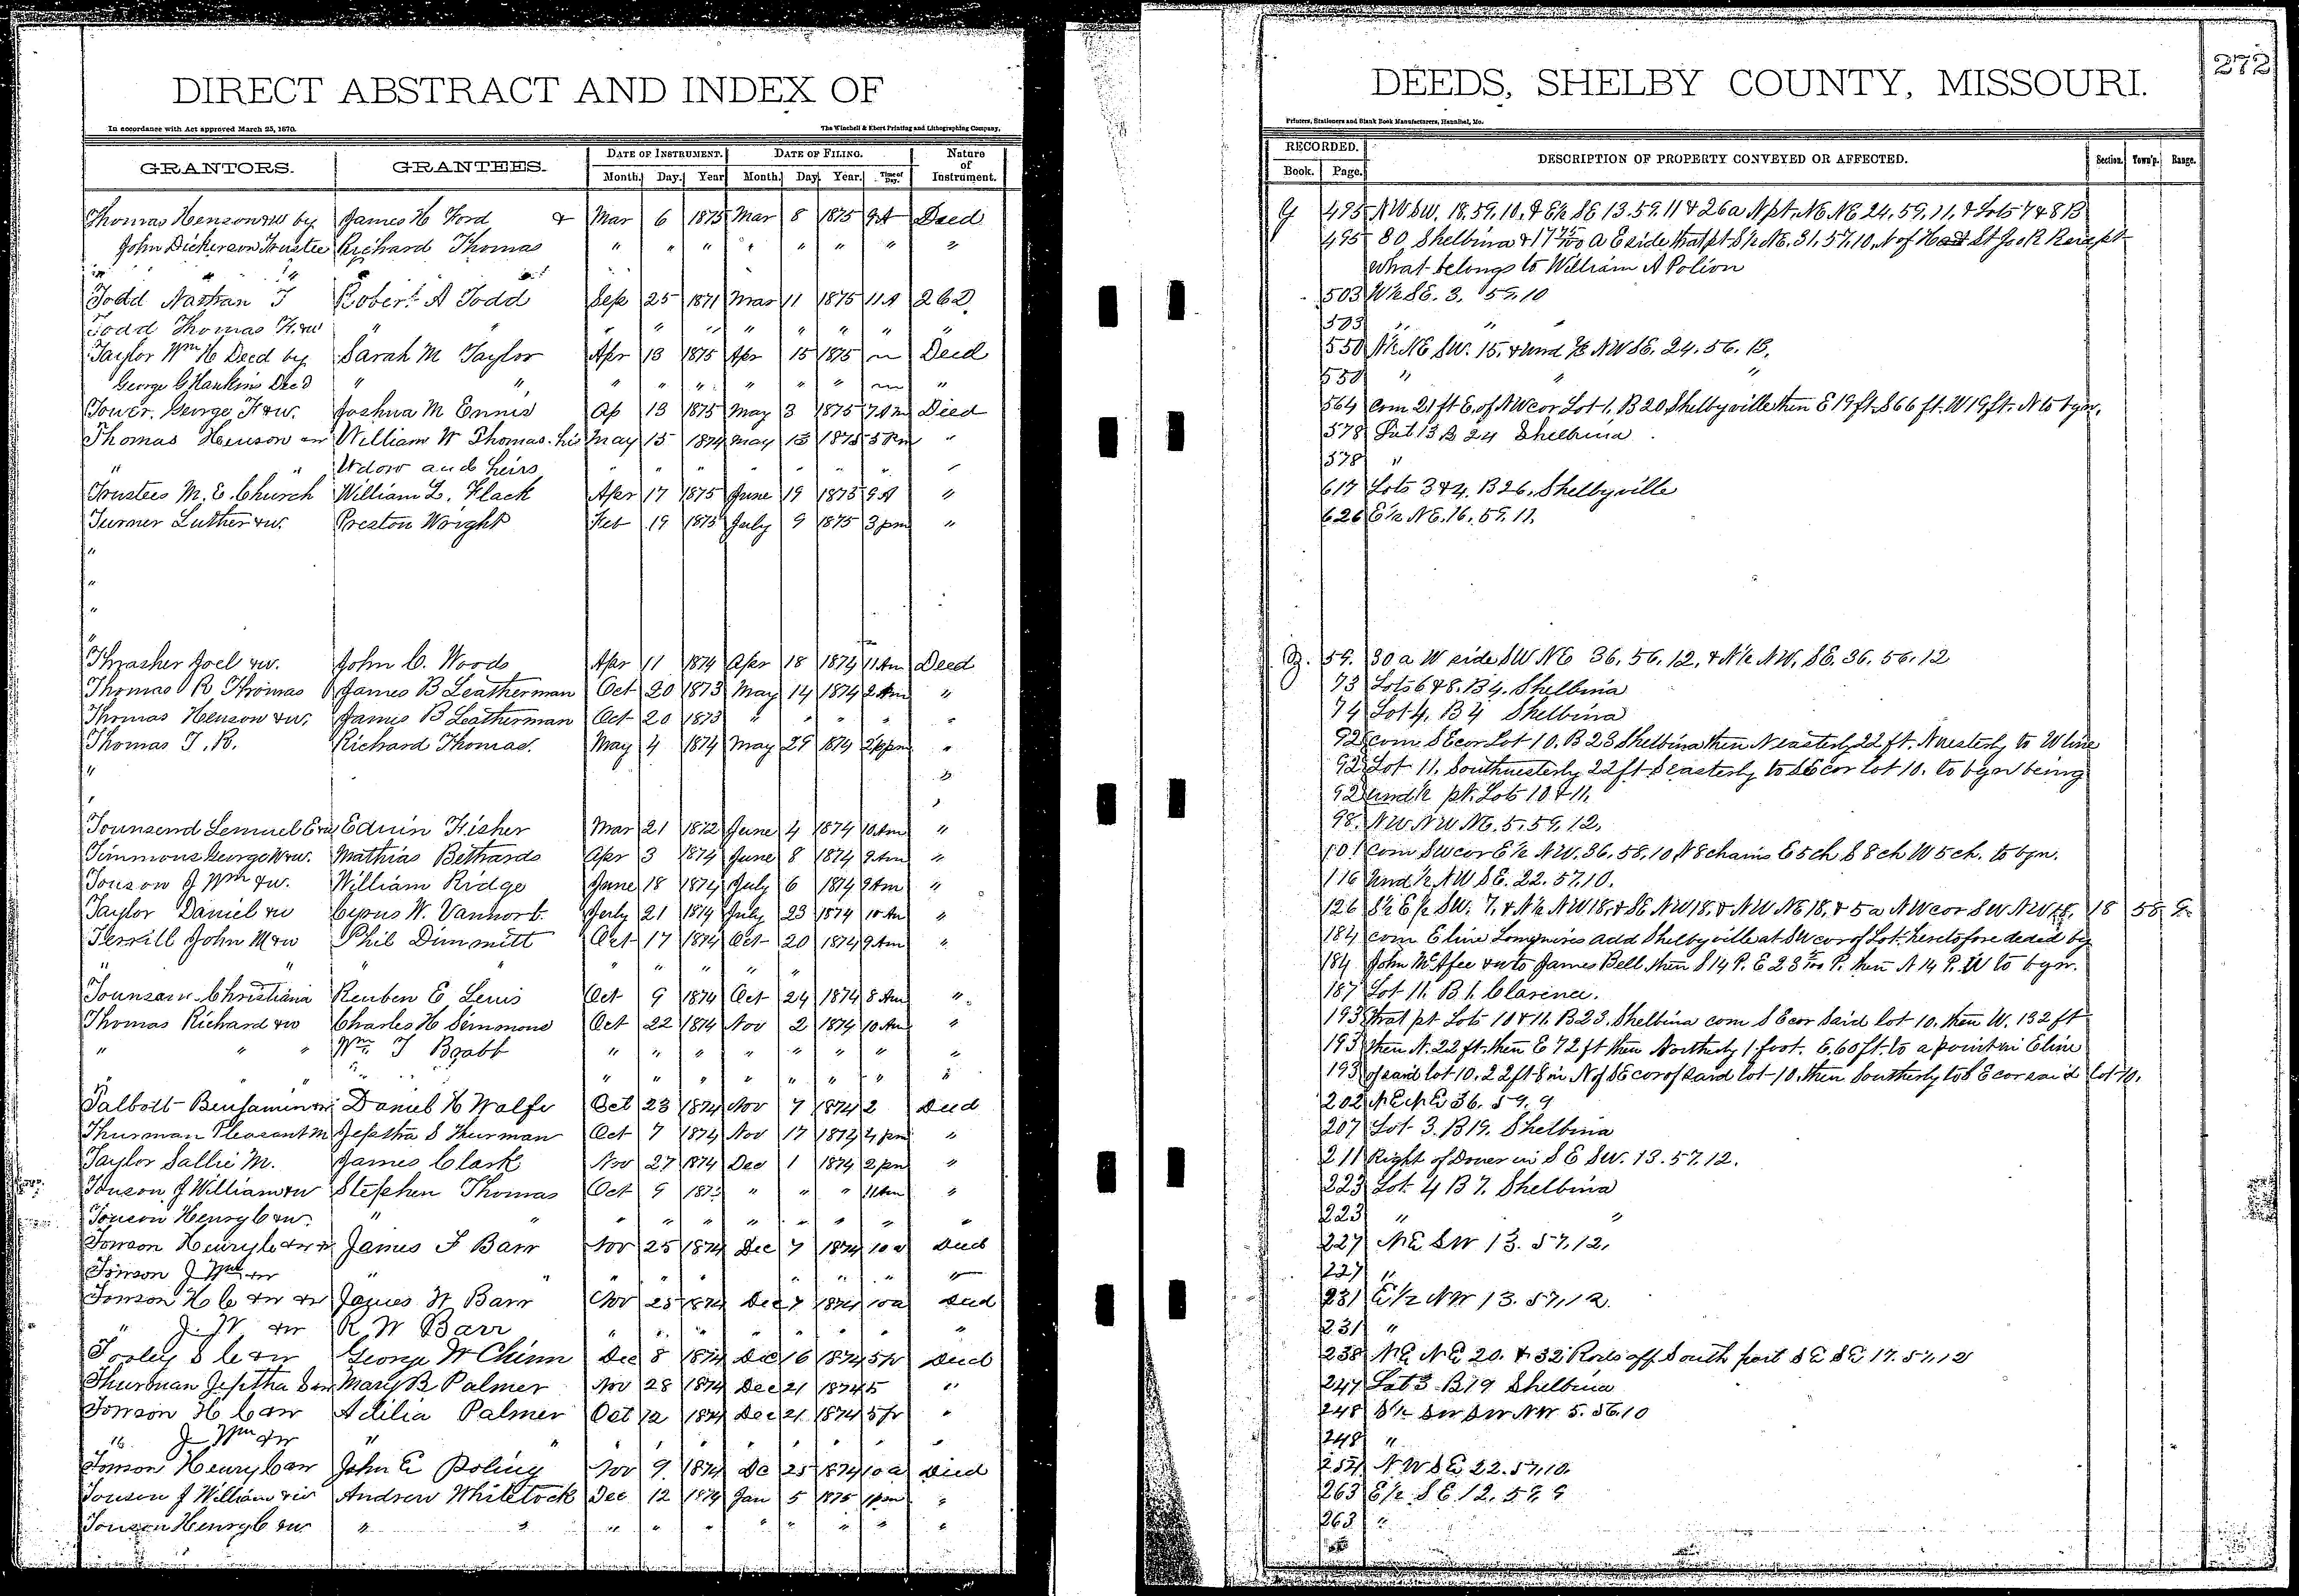 DIRECT ABSTRACT AND INDEX OF
In accordance with Act approved March 25, 1870.
The Winchell & Ebert Printing and Lithographing Company,
GRANTORS. GRANTEES. DATE OF INSTRUMENT. DATE OF FILING. Nature of Instrument.
Month. Day. Year Month. Day. Year. Time of Day.
Thomas Henson & w by James H Ford & Mar 6 1875 Mar 8 1875 9 A Deed
John Dickerson Trustee Richard Thomas " " " " " " " "
Todd Nathan T Robert A Todd Sep 25 1871 Mar 11 1875 11 A 2 6 D
Todd Thomas H. & w " " " " " " " " "
Taylor Wm H Deed by Sarah M Taylor Apr 13 1875 Apr 15 1875 m Deed
George C Hankins Deed " " " " " " " " m "
Tower. George F & w. Joshua M Ennis Ap 13 1875 May 3 1875 7 Am Deed
Thomas Henson William W Thomas. his May 15 1874 May 13 1875 5 Pm "
" " Wdow and heirs " " " " " " "
Trustees M. E. Church William L. Flack Apr 17 1875 June 19 1875 9 A "
Turner Luther & w. Preston Wright Feb 19 1875 July 9 1875 3 pm "
"
"
"
"
Thrasher Joel & w. John C. Woods Apr 11 1874 Apr 18 1874 11 Am Deed
Thomas R Thomas James B Leatherman Oct 20 1873 May 14 1874 2 Am "
Thomas Henson & w. James B Leatherman Oct 20 1873 " " " " "
Thomas T. R. Richard Thomas. May 4 1874 May 29 1874 2 pm "
" "
" "
Tounsend Lemuel Edwin Fisher Mar 21 1872 June 4 1874 10 Am "
Timmons George W & w. Mathias Bethards Apr 3 1874 June 8 1874 9 Am "
Touson J Wm & w. William Ridge June 18 1874 July 6 1874 9 Am "
Taylor Daniel & w Cyrus W. Vannort July 21 1874 July 23 1874 10 Am "
Terrill John M & w Phil Dimmitt Oct 17 1874 Oct 20 1874 9 Am "
" " " " " "
Christiana Reuben E Lewis Oct 9 1874 Oct 24 1874 8 Am "
Thomas Richard & w Charles H Simmons Oct 22 1874 Nov 2 1874 10 Am "
" " " Wm T Bgabb " " " " " " " "
" " " " " " " "
Talbott Benjamin & w Daniel H Wolfe Oct 23 1874 Nov 7 1874 2 Deed
Thurman Pleasant M Jeptha S Thurman Oct 7 1874 Nov 17 1874 4 pm "
Taylor Sallie M. James Clark Nov 27 1874 Dec 1 1874 2 pm "
Touson J William & w Stephen Thomas Oct 9 1873 " " " 11 Am "
Touson Henry C & w. " " " " " " " " " "
Tonson Henry C & w James F Barr Nov 25 1874 Dec 7 1874 10 a Deed
Tonson J Wm & w " " " " " " " " " "
Tonson H C & w James W Barr Nov 25 1874 Dec 7 1874 10 a Deed
" J. W & w R W Barr " " " " " " " "
Tooley S C & w George W Chinn Dec 8 1874 Dec 16 1874 5 p Deed
Thurman Jeptha S & w Mary B Palmer Nov 28 1874 Dec 21 1874 5 "
Tonson H C & w Adilia Palmer Oct 12 1874 Dec 21 1874 5 p "
" J Wm & w " " " " " " " " "
Tonson Henry C & w John E Poling Nov 9. 1874 De 25 1874 10 a Died
Touson J William & w Andrew Whitelock Dec 12 1874 Jan 5 1875 1 pm "
Touson Henry C & w " " " " " " " " " "
272
DEEDS, SHELBY COUNTY, MISSOURI.
Printers, Stationers and Blank Book Manufacturers, Hannibal, Mo.
RECORDED. DESCRIPTION OF PROPERTY CONVEYED OR AFFECTED. Section. Town'p. Range.
Book. Page.
Y 495 N W S W. 18. 59. 10. & E ½ SE 13. 59. 11 & 26 a N pt. NE NE 24. 59. 11. & Lots 7 & 8 B
495 80 Shelbina & 17 75/100 a E side that pt S ½ NE. 31. 57. 10. N of H St Jo R R except
what belongs to William A Polion
503 W ½ SE. 3. 59. 10
503 " " "
550 N ½ NE SW. 15. & Und ½ NW SE. 24. 56. 13.
550 " " "
564 Com 21 ft E. of NW cor Lot 1. B 20 Shelbyville then E 19 ft. S 66 ft. W 19 ft. N to bgn.
578 Lot 13 B 24 Shelbina
578 "
617 Lots 3 & 4. B 26. Shelbyville
626 E ½ NE. 16. 59. 11.
Z. 59. 30 a W side SW NE 36. 56. 12. & N ½ NW. SE. 36. 56. 12
73 Lots 6 & 8. B 4. Shelbina
74 Lot 4. B 4 Shelbina
92 com S E cor Lot 10. B 23 Shelbina then N easterly 22 ft. N westerly to W line
92 Lot 11. Southwesterly 22 ft S easterly to SE cor lot 10. to bgn being
92 und ½ pt. Lots 10 & 11.
98. NW NW NE. 5. 59. 12.
101 Com SW cor E ½ NW. 36. 58. 10 N 8 chains E 5 ch S 8 ch W 5 ch. to bgn.
116 Und ½ NW SE. 22. 57. 10.
126 S ½ E ½ SW. 7. & N ½ NW 18. & SE NW 18. & NW NE 18. & 5 a NW cor SW NW 18. 18 58 9
184 com E line Longmires Add Shelbyville at SW cor of Lot heretofore deded by
184 John McAfee & w to James Bell then S 14 P. E 23 P. then N 14 P. W to bgn.
187 Lot 11. B 1. Clarence.
193 that pt Lots 10 & 11. B 23. Shelbina com S E cor said lot 10. then W. 132 ft
193 then N. 22 ft. then E 72 ft then Northerly 1 foot. E. 60 ft. to a point in E line
193 of said lot 10. 22 ft 8 in N of SE cor of said lot 10. then Southerly to S E cor said lot 10.
202 NE NE 36. 59. 9
207 Lot 3. B 19. Shelbina
211 Right of Dower in S E SW. 13. 57. 12.
223 Lot 4 B 7. Shelbina
223 " "
227 NE SW 13. 57. 12.
227 "
231 E ½ NW 13. 57. 12.
231 "
238 NE NE 20. & 32 Rods off South part SE SE 17. 57. 12
247 Lot 3 B 19 Shelbina
248 S ½ SW SW NW 5. 56. 10
248 "
257 NW SE 22. 57. 10.
263 E ½ SE 12. 57. 9
263 "